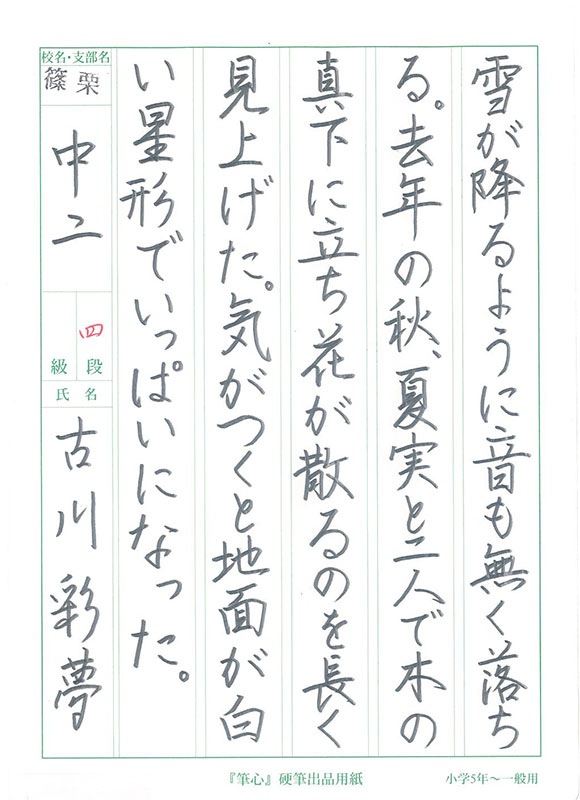 雪が降るように音も無く落ち
る。去年の秋、夏実と二人で木の
真下に立ち花が散るのを長く
見上げた。気がつくと地面が白
い星形でいっぱいになった。
校名・支部名
篠栗
中二
四
級 段
氏名
古川彩夢
『筆心』硬筆出品用紙
小学5年〜一般用